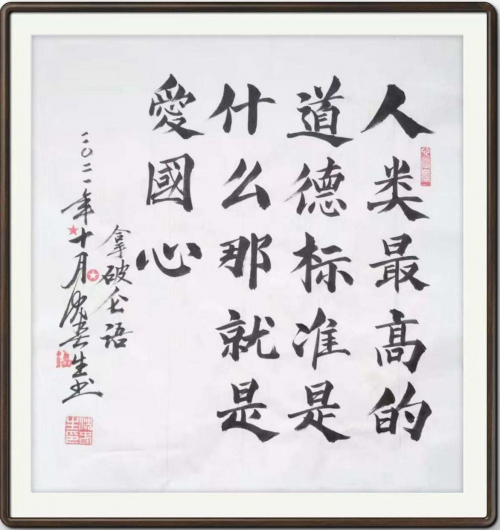 人类最高的
道德标准是
什么那就是
愛國心
拿破仑语
二〇二一年十月
生书